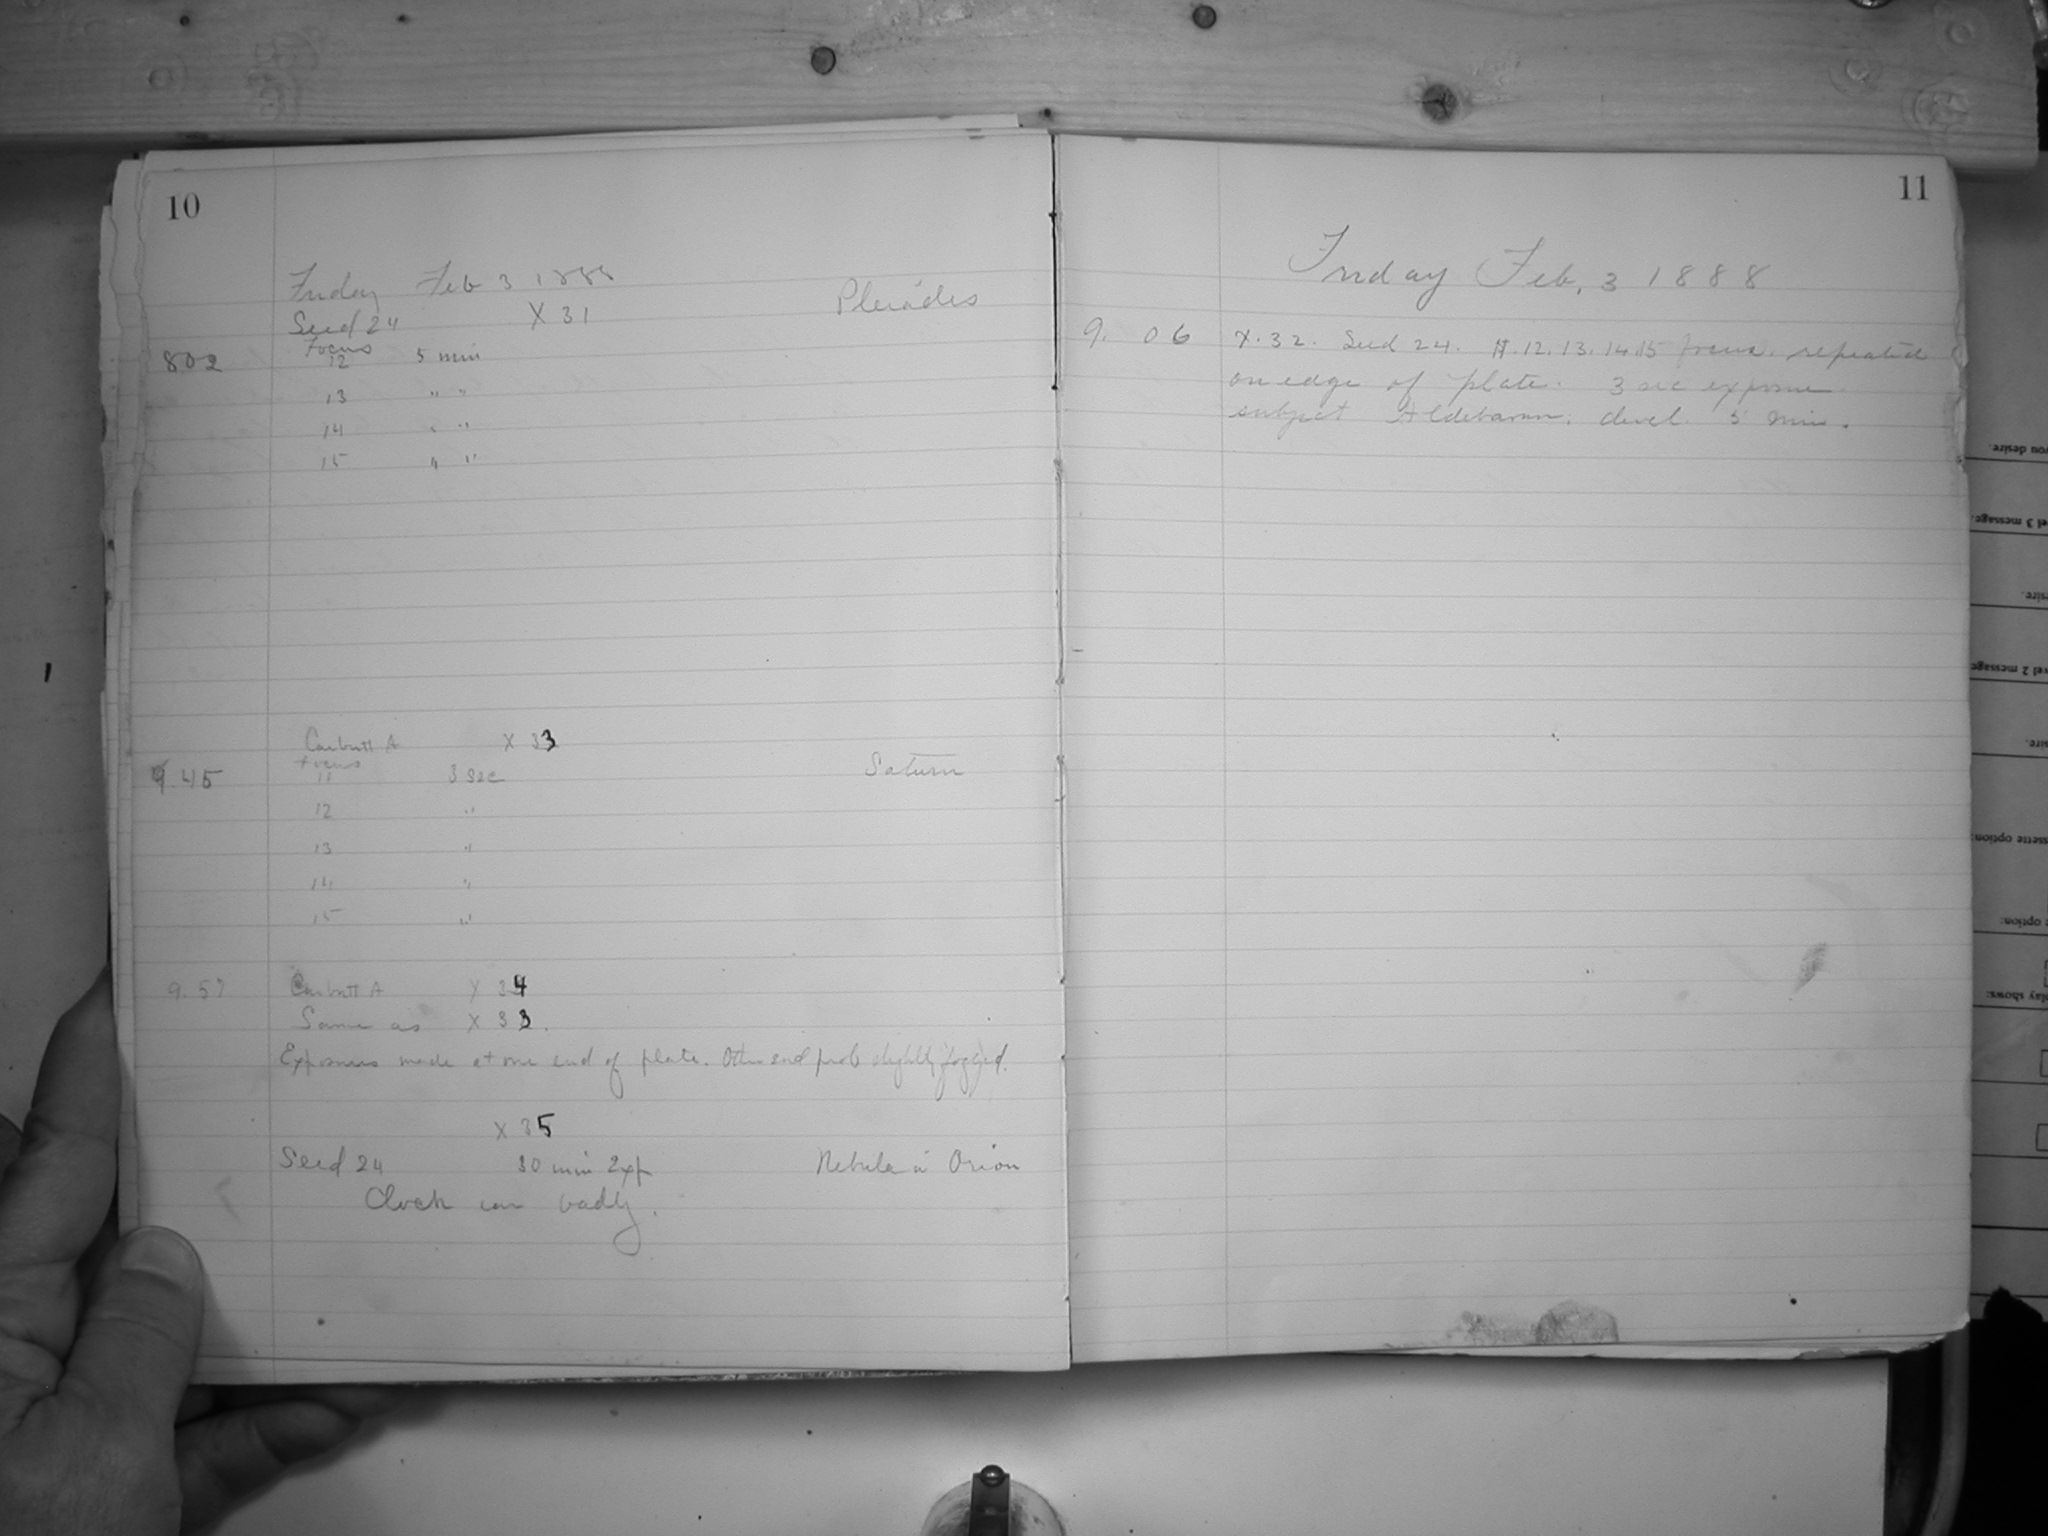 10
Friday Feb 3 1888
Seed 24 X 31 Pleiades
Focus
802 12 5 min
13 " "
14 " "
15 " "
Carbutt A X 33
focus
9.45 11 3 sec Saturn
12 "
13 "
14 "
15 "
9.57 Carbutt A X 34
Same as X 33.
Exposures made at one end of plate. Other end prob slightly fogged.
X 35
Seed 24 30 min Exp Nebula in Orion
Clock ran badly.
11
Friday Feb, 3 1888
9. 06 X. 32. Seed 24. 12. 13. 14. 15 focus. repeated
on edge of plate. 3 sec exposure
subject Aldebaran. devel. 5 min.
you desire.
el 3 message.
sire.
vel 2 message
sire.
ssette option:
option:
play shows: